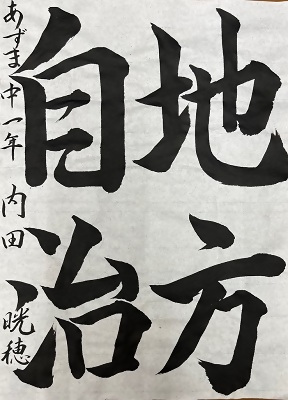 地方
自治
あずま中一年 内田 晄穂